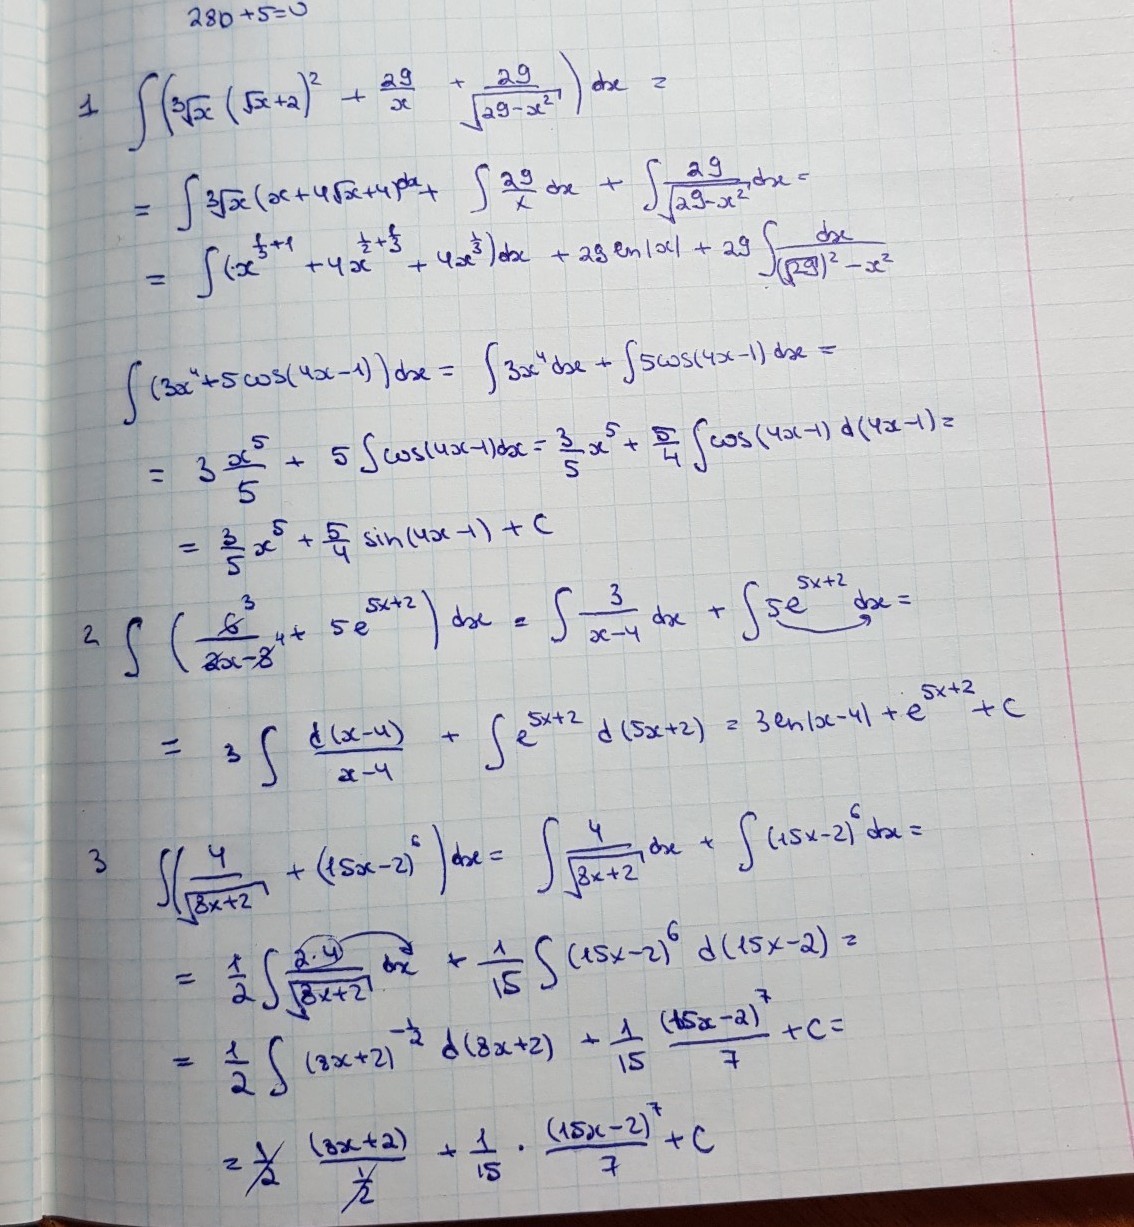 280+5=0
1 ∫(∛x (√x+2)² + 29/x + 29/√(29-x²)) dx =
= ∫ ∛x (x+4√x+4)dx + ∫ 29/x dx + ∫ 29/√(29-x²) dx =
= ∫(x^(1/3+1) + 4x^(1/2+1/3) + 4x^(1/3))dx + 29 ln|x| + 29 ∫ dx/((√29)²-x²)
∫(3x⁴+5cos(4x-1))dx = ∫3x⁴dx + ∫5cos(4x-1)dx =
= 3 x⁵/5 + 5∫cos(4x-1)dx = 3/5 x⁵ + 5/4 ∫cos(4x-1) d(4x-1) =
= 3/5 x⁵ + 5/4 sin(4x-1) + C
2 ∫(6³/(2x-8⁴) + 5e^(5x+2)) dx = ∫ 3/(x-4) dx + ∫5e^(5x+2) dx =
= 3 ∫ d(x-4)/(x-4) + ∫e^(5x+2) d(5x+2) = 3 ln|x-4| + e^(5x+2) + C
3 ∫(4/√(8x+2) + (15x-2)⁶) dx = ∫ 4/√(8x+2) dx + ∫(15x-2)⁶ dx =
= 1/2 ∫ 2·4/√(8x+2) dx + 1/15 ∫(15x-2)⁶ d(15x-2) =
= 1/2 ∫(8x+2)^(-1/2) d(8x+2) + 1/15 (15x-2)⁷/7 + C =
= 1/2 (8x+2)/(1/2) + 1/15 · (15x-2)⁷/7 + C